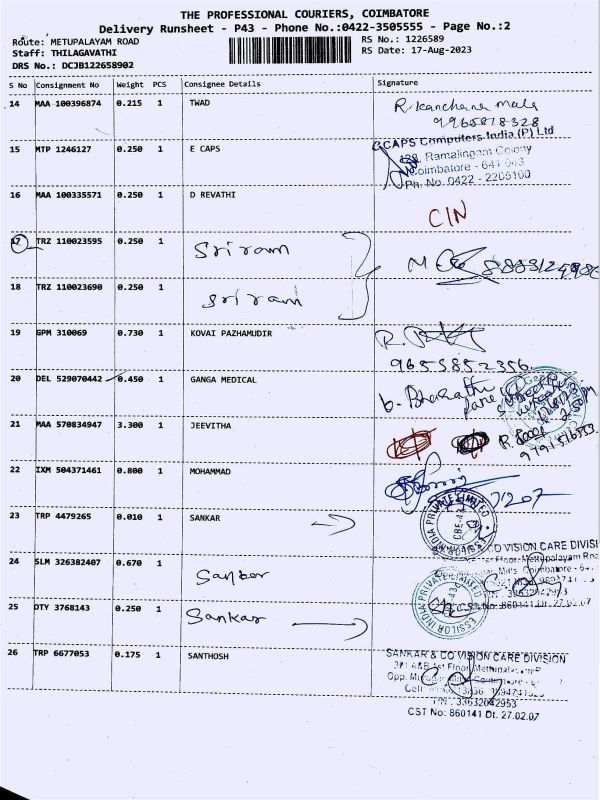 THE PROFESSIONAL COURIERS, COIMBATORE
Delivery Runsheet - P43 - Phone No.:0422-3505555 - Page No.:2
Route: METUPALAYAM ROAD
RS No.: 1226589
Staff: THILAGAVATHI
RS Date: 17-Aug-2023
DRS No.: DCJB122658902
S No Consignment No Weight PCS Consignee Details Signature
14 MAA 100396874 0.215 1 TWAD
R. Kanchana Mala
9965878328
15 MTP 1246127 0.250 1 E CAPS
CAPS Computers India (P) Ltd
Ramalingam Colony
Coimbatore - 641 043
Ph. No. 0422 - 2205100
16 MAA 100335571 0.250 1 D REVATHI
CIN
17 TRZ 110023595 0.250 1 Sri ram
18 TRZ 110023690 0.250 1 Sri ram
19 GPM 310069 0.730 1 KOVAI PAZHAMUDIR
9655852356
20 DEL 529070442 0.450 1 GANGA MEDICAL
b. Bharathi
21 MAA 570834947 3.300 1 JEEVITHA
22 IXM 504371461 0.800 1 MOHAMMAD
23 TRP 4479265 0.010 1 SANKAR
24 SLM 326382407 0.670 1 Sankar
CO VISION CARE DIVISI
CST No: 860141 Dt. 27.02.07
25 DTY 3768143 0.250 1 Sankar
ESSILOR INDIA PRIVATE LIMITED
26 TRP 6677053 0.175 1 SANTHOSH
SANKAR & CO VISION CARE DIVISION
TIN : 33632042953
CST No: 860141 Dt. 27.02.07